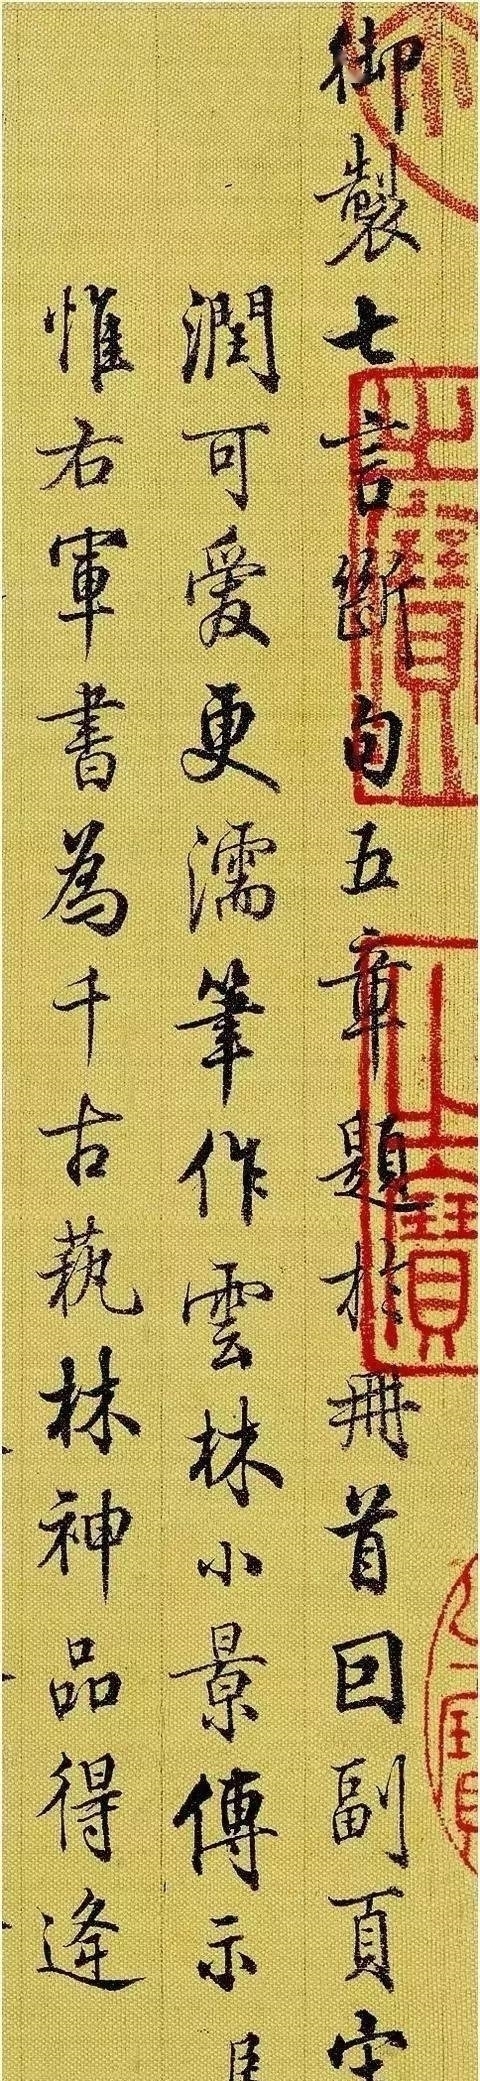 御製七言斷句五章題於冊首因副頁宋
潤可愛更濡筆作雲林小景傳示
惟右軍書為千古蓺林神品得逢
之寶
之寶